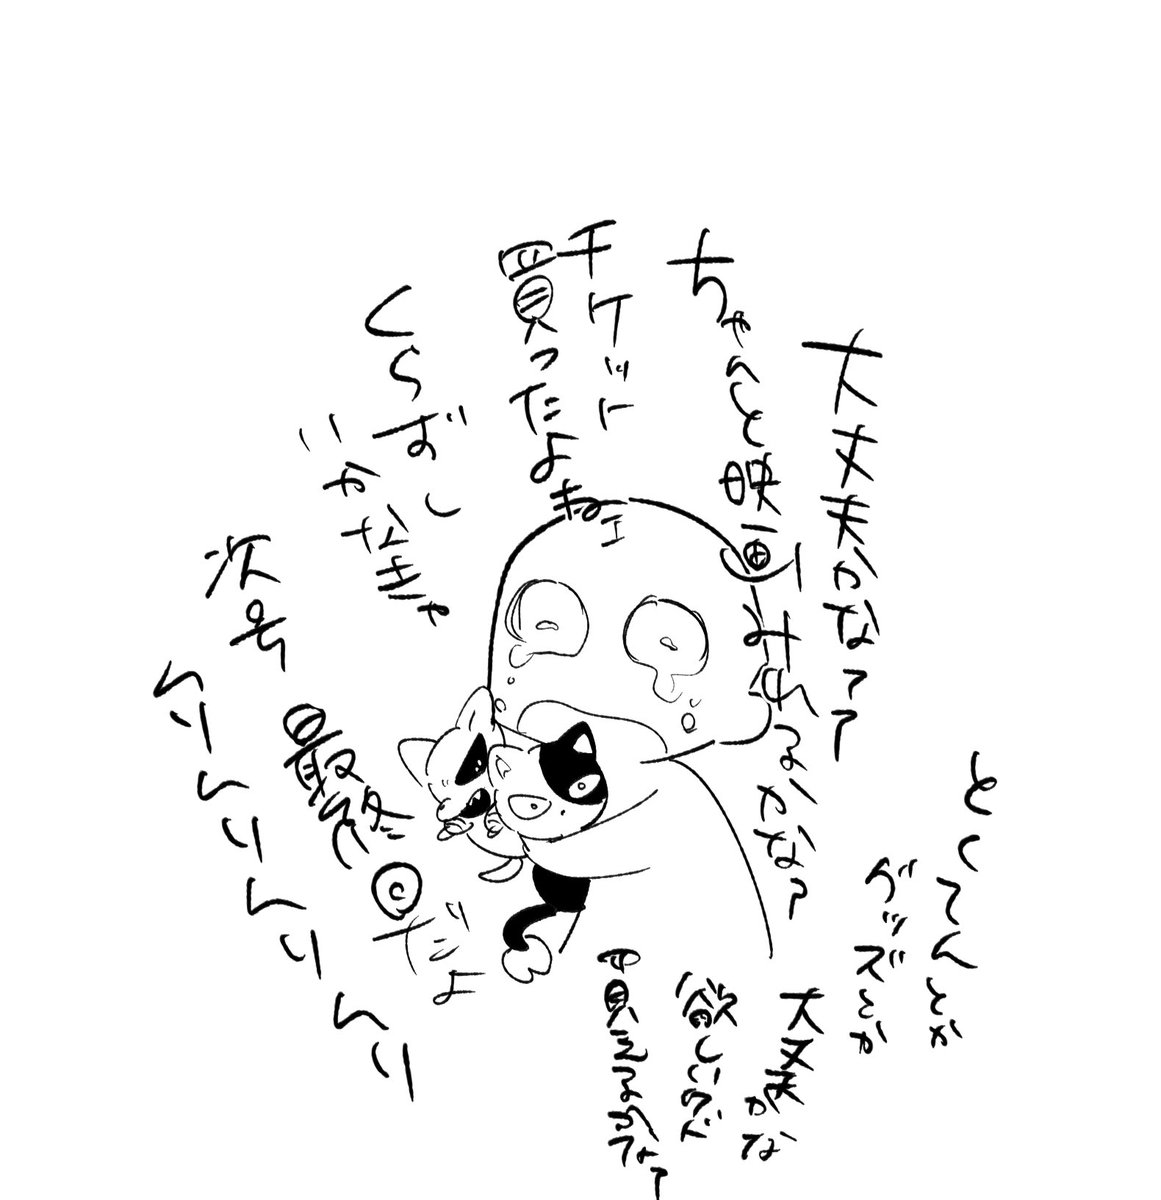 大丈夫かな??
ちゃんと映画
みれるかな?
チケット
買ったよねェ
くらずし
いかなきゃ
次号
最終回だよ
んりんりんりんり
とくてんとか
グッズとか
大丈夫かな
欲しいケド
買えるかな?